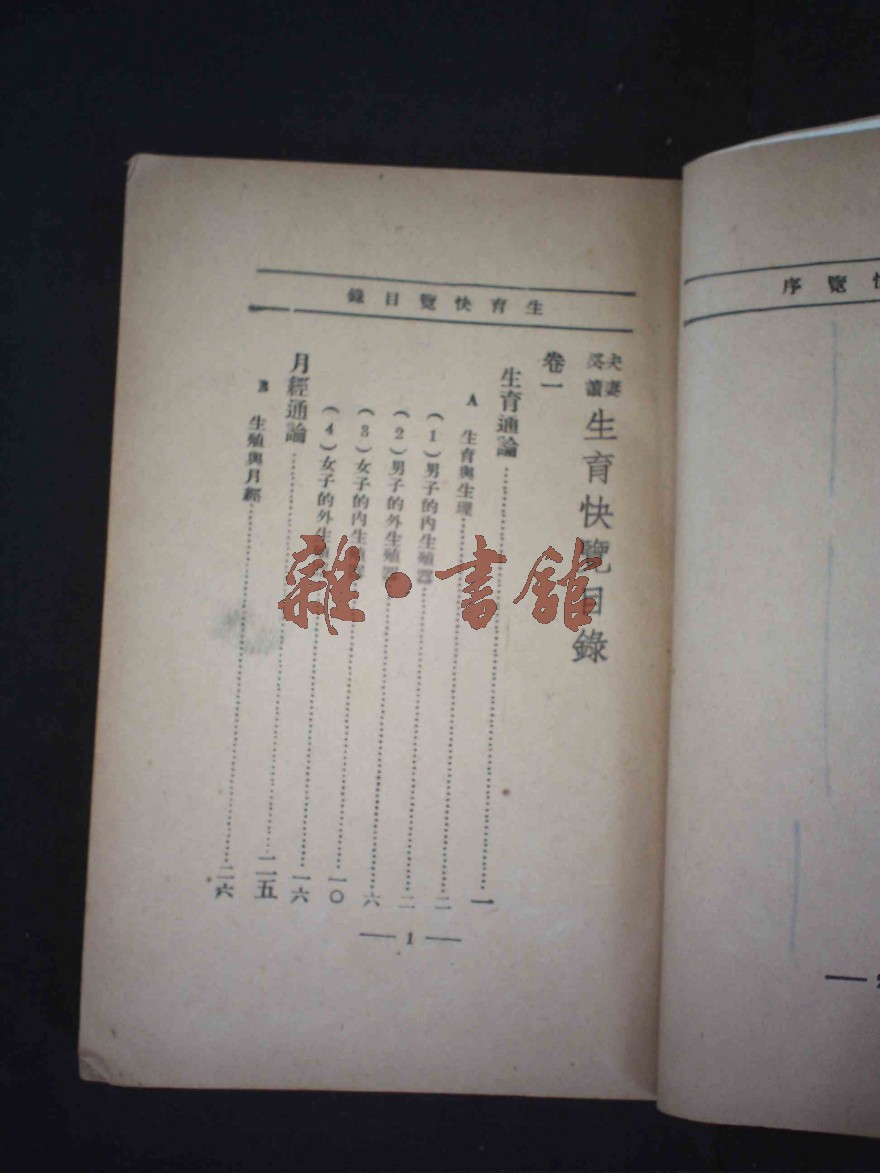 生育快覽目錄
夫妻
讀
生育快覽目錄
卷一
生育通論……一
A 生育與生理……二
(1)男子的內生殖器……二
(2)男子的外生殖器……六
(3)女子的內生殖器……一〇
(4)女子的外生殖……一六
月經通論……二五
B 生殖與月經……二六
— 1 —
覽序
雜·書館